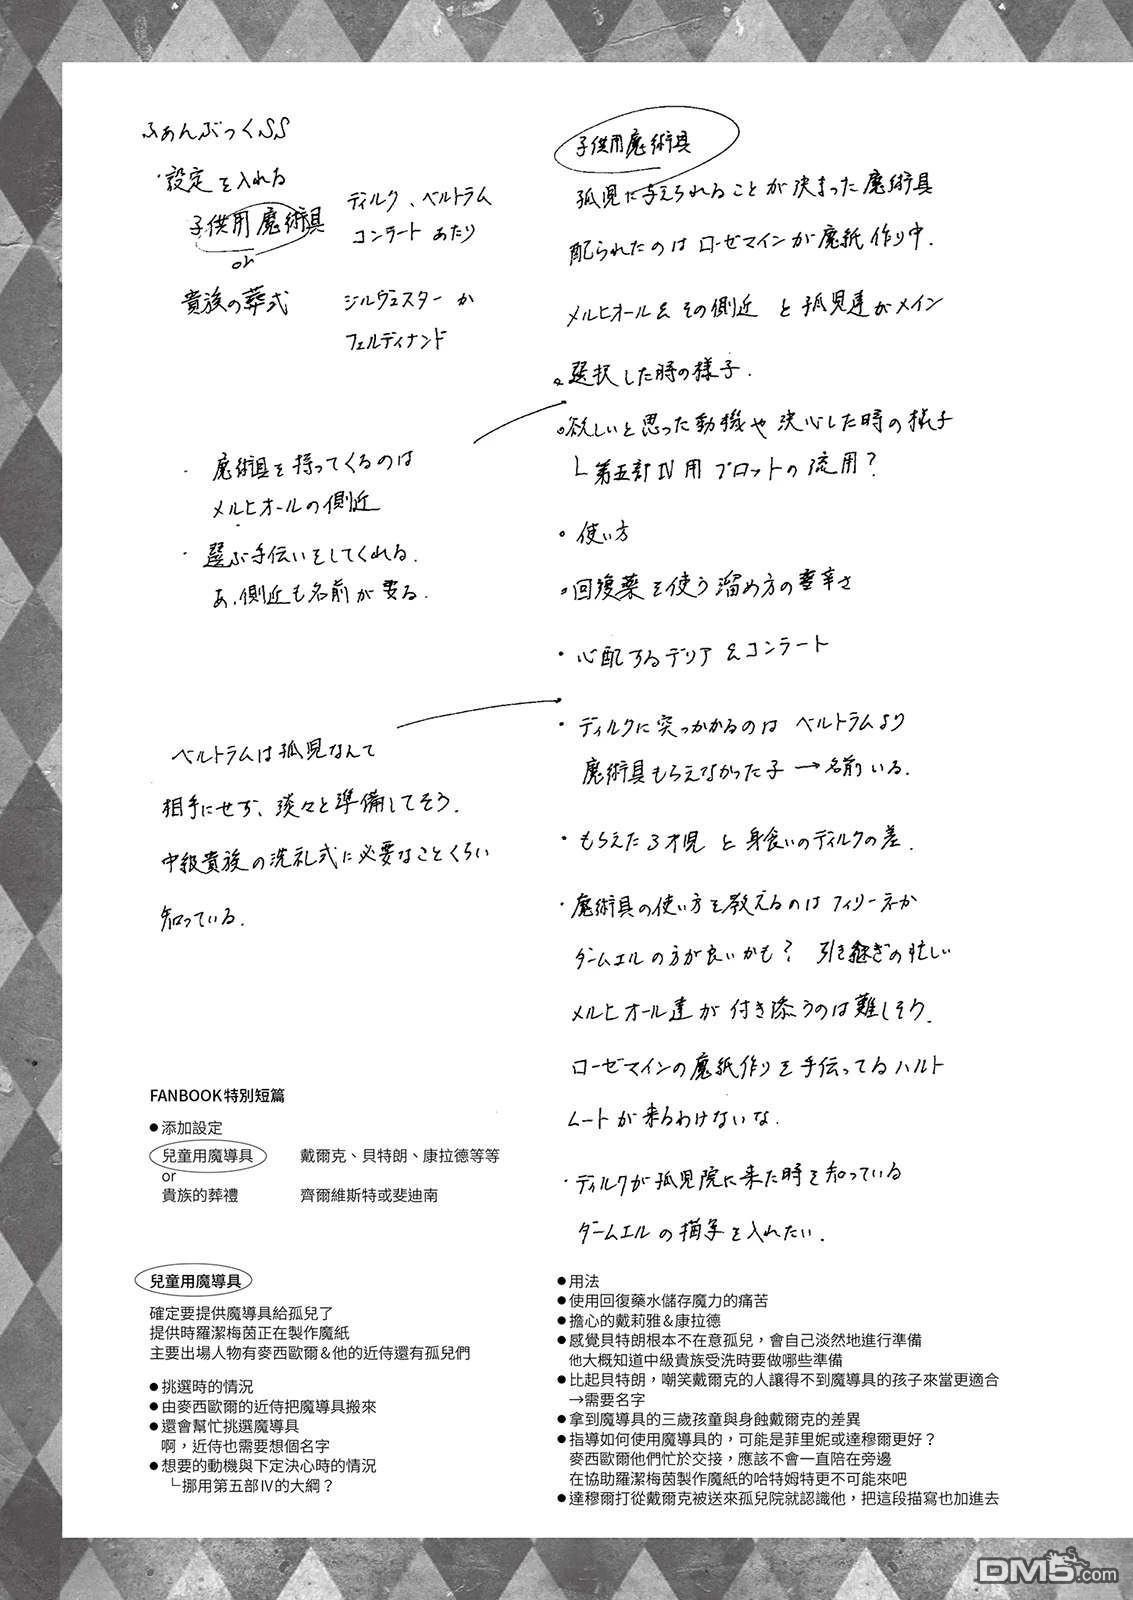 ふぁんぶっくSS
・設定を入れる
子供用魔術具
or
貴族の葬式
ディルク、ベルトラム
コンラート あたり
ジルヴェスター か
フェルディナンド
・魔術具を持ってくるのは
メルヒオールの側近
・選ぶ手伝いをしてくれる.
あ、側近も名前が要る.
ベルトラムは孤児なんて
相手にせず、淡々と準備してそう.
中級貴族の洗礼式に必要なことくらい
知っている.
子供用魔術具
孤児に与えられることが決まった魔術具
配られたのはローゼマインが魔紙作り中.
メルヒオール&その側近 と 孤児達がメイン
○選択した時の様子.
○欲しいと思った動機や決心した時の様子
└第五部Ⅳ用プロットの流用?
○使い方
○回復薬を使う溜め方の辛さ
・心配するデリア&コンラート
・ディルクに突っかかるのは ベルトラムより
魔術具もらえなかった子 → 名前いる.
・もらえた3才児 と 身食いのディルクの差.
・魔術具の使い方を教えるのは フィリーネか
ダームエルの方が良いかも? 引き継ぎの忙しい
メルヒオール達が付き添うのは難しそう.
ローゼマインの魔紙作りを手伝ってるハルト
ムートが来るわけないな.
・ディルクが孤児院に来た時を知っている
ダームエルの描写を入れたい.
FANBOOK特別短篇
●添加設定
兒童用魔導具 戴爾克、貝特朗、康拉德等等
or
貴族的葬禮 齊爾維斯特或斐迪南
兒童用魔導具
確定要提供魔導具給孤兒了
提供時羅潔梅茵正在製作魔紙
主要出場人物有麥西歐爾＆他的近侍還有孤兒們
●挑選時的情況
●由麥西歐爾的近侍把魔導具搬來
●還會幫忙挑選魔導具
啊，近侍也需要想個名字
●想要的動機與下定決心時的情況
└挪用第五部Ⅳ的大綱？
●用法
●使用回復藥水儲存魔力的痛苦
●擔心的戴莉雅＆康拉德
●感覺貝特朗根本不在意孤兒，會自己淡然地進行準備
他大概知道中級貴族受洗時要做哪些準備
●比起貝特朗，嘲笑戴爾克的人讓得不到魔導具的孩子來當更適合
→需要名字
●拿到魔導具的三歲孩童與身蝕戴爾克的差異
●指導如何使用魔導具的，可能是菲里妮或達穆爾更好？
麥西歐爾他們忙於交接，應該不會一直陪在旁邊
在協助羅潔梅茵製作魔紙的哈特姆特更不可能來吧
●達穆爾打從戴爾克被送來孤兒院就認識他，把這段描寫也加進去
DM5.com